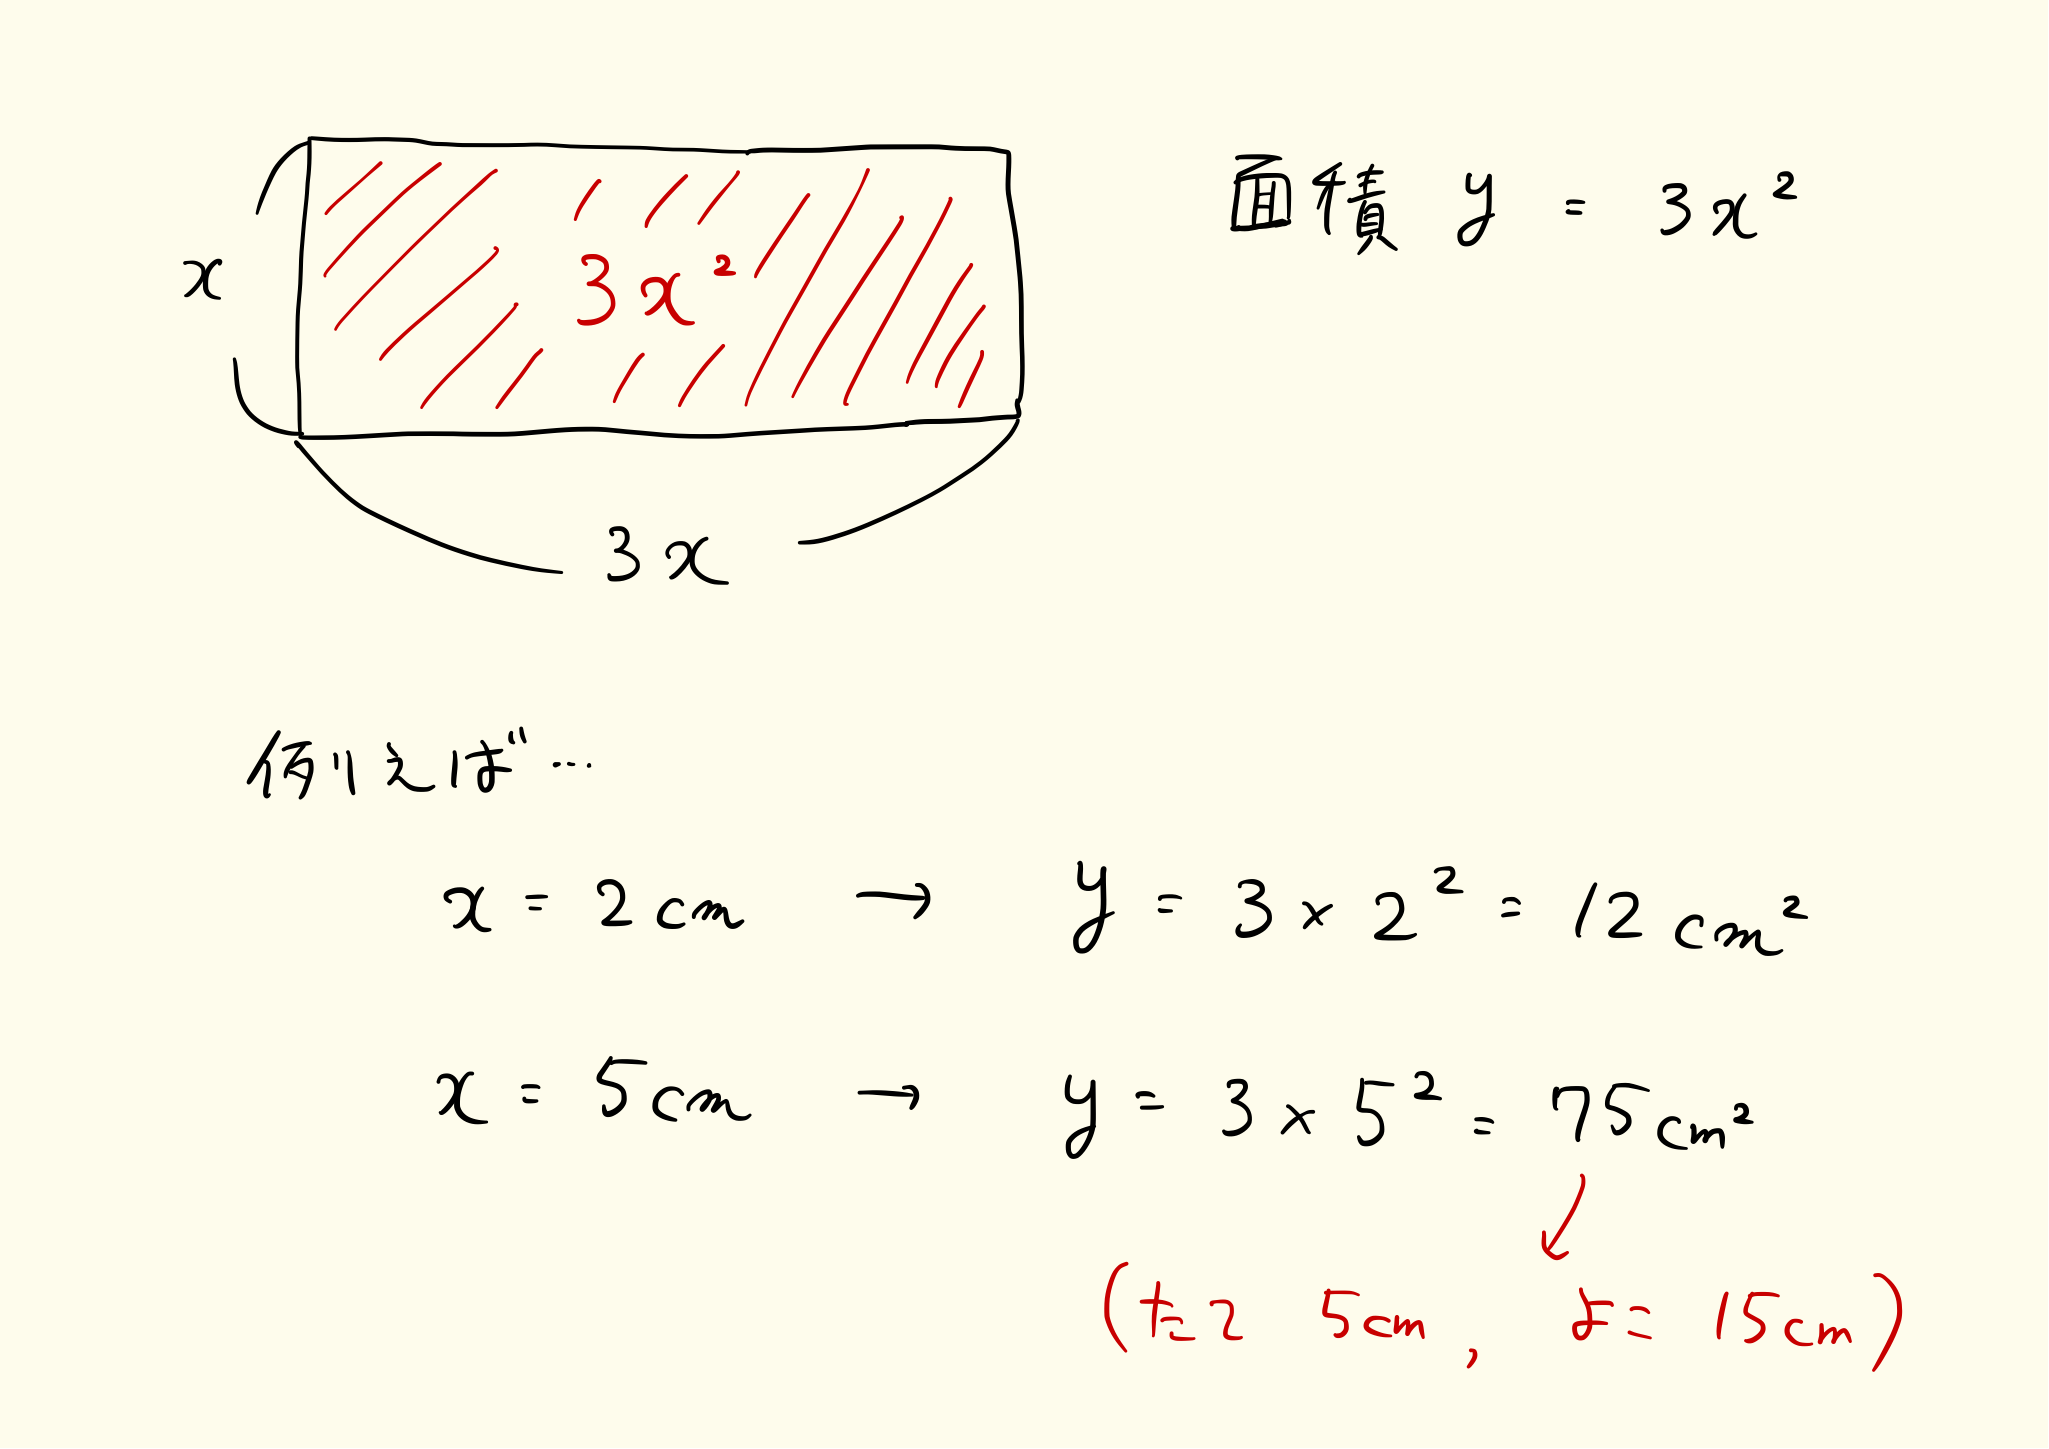 x
3x²
3x
面積 y = 3x²
例えば…
x = 2cm → y = 3 × 2² = 12 cm²
x = 5cm → y = 3 × 5² = 75cm²
(たて 5cm, よこ 15cm)